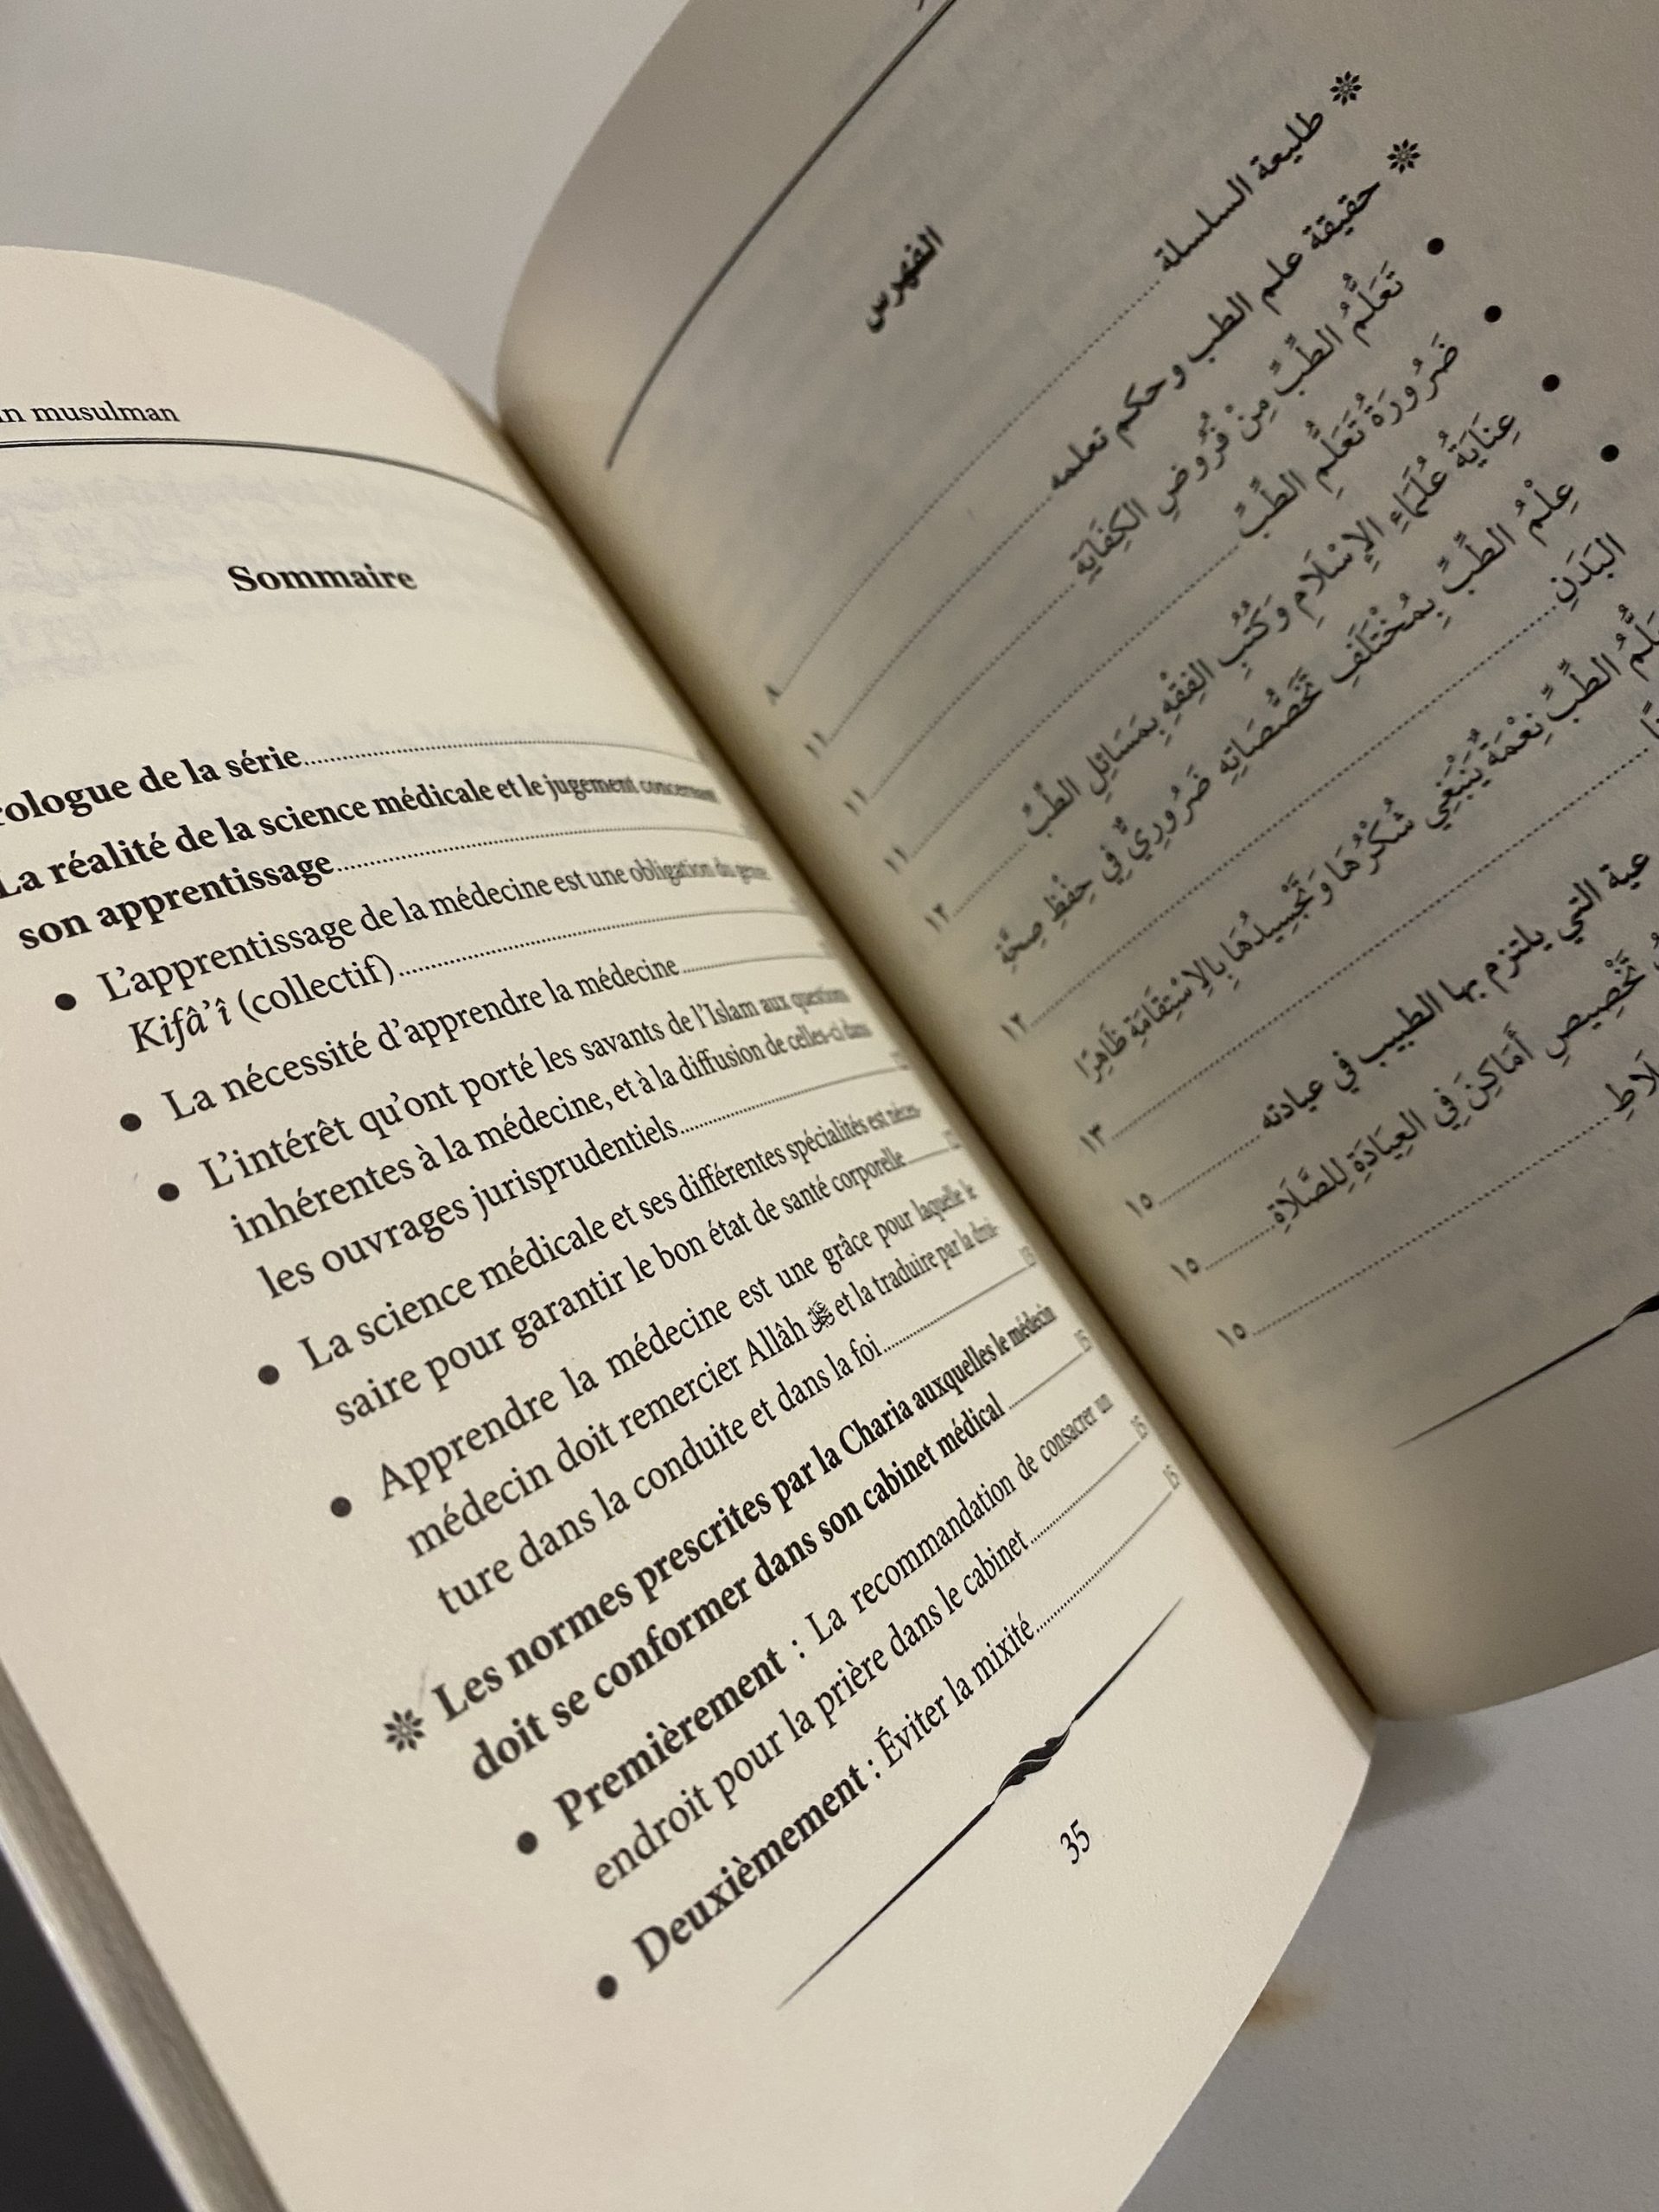 musulman
Sommaire
de la série
La réalité de la science médicale et le jugement concernant
son apprentissage
• L'apprentissage de la médecine est une obligation du genre
Kifâ'î (collectif)
• La nécessité d'apprendre la médecine
• L'intérêt qu'ont porté les savants de l'Islam aux questions
inhérentes à la médecine, et à la diffusion de celles-ci dans
les ouvrages jurisprudentiels
• La science médicale et ses différentes spécialités est néces-
saire pour garantir le bon état de santé corporelle
• Apprendre la médecine est une grâce pour laquelle le
médecin doit remercier Allâh ﷻ et la traduire par la droi-
ture dans la conduite et dans la foi 13
Les normes prescrites par la Charia auxquelles le médecin
doit se conformer dans son cabinet médical 15
• Premièrement : La recommandation de consacrer un
endroit pour la prière dans le cabinet 15
• Deuxièmement : Éviter la mixité 15
35
الفهرس
طليعة السلسلة ٨
حقيقة علم الطب وحكم تعلمه ١١
• تَعَلُّمُ الطِّبِّ مِنْ فُرُوضِ الكِفَايَةِ ١١
• ضَرُورَةُ تَعَلُّمِ الطِّبِّ ١١
• عِنَايَةُ عُلَمَاءِ الإِسْلَامِ وَكُتُبِ الفِقْهِ بِمَسَائِلِ الطِّبِّ ١٢
• عِلْمُ الطِّبِّ بِمُخْتَلَفِ تَخَصُّصَاتِهِ ضَرُورِيٌّ فِي حِفْظِ صِحَّةِ
البَدَنِ ١٢
الطِّبِّ نِعْمَةٌ يَنْبَغِي شُكْرُهَا وَتَجْسِيدُهَا بِالاِسْتِقَامَةِ ظَاهِرًا
١٣
التي يلتزم بها الطبيب في عيادته ١٥
تَخْصِيصِ أَمَاكِنَ فِي العِيَادَةِ لِلصَّلَاةِ ١٥
١٥